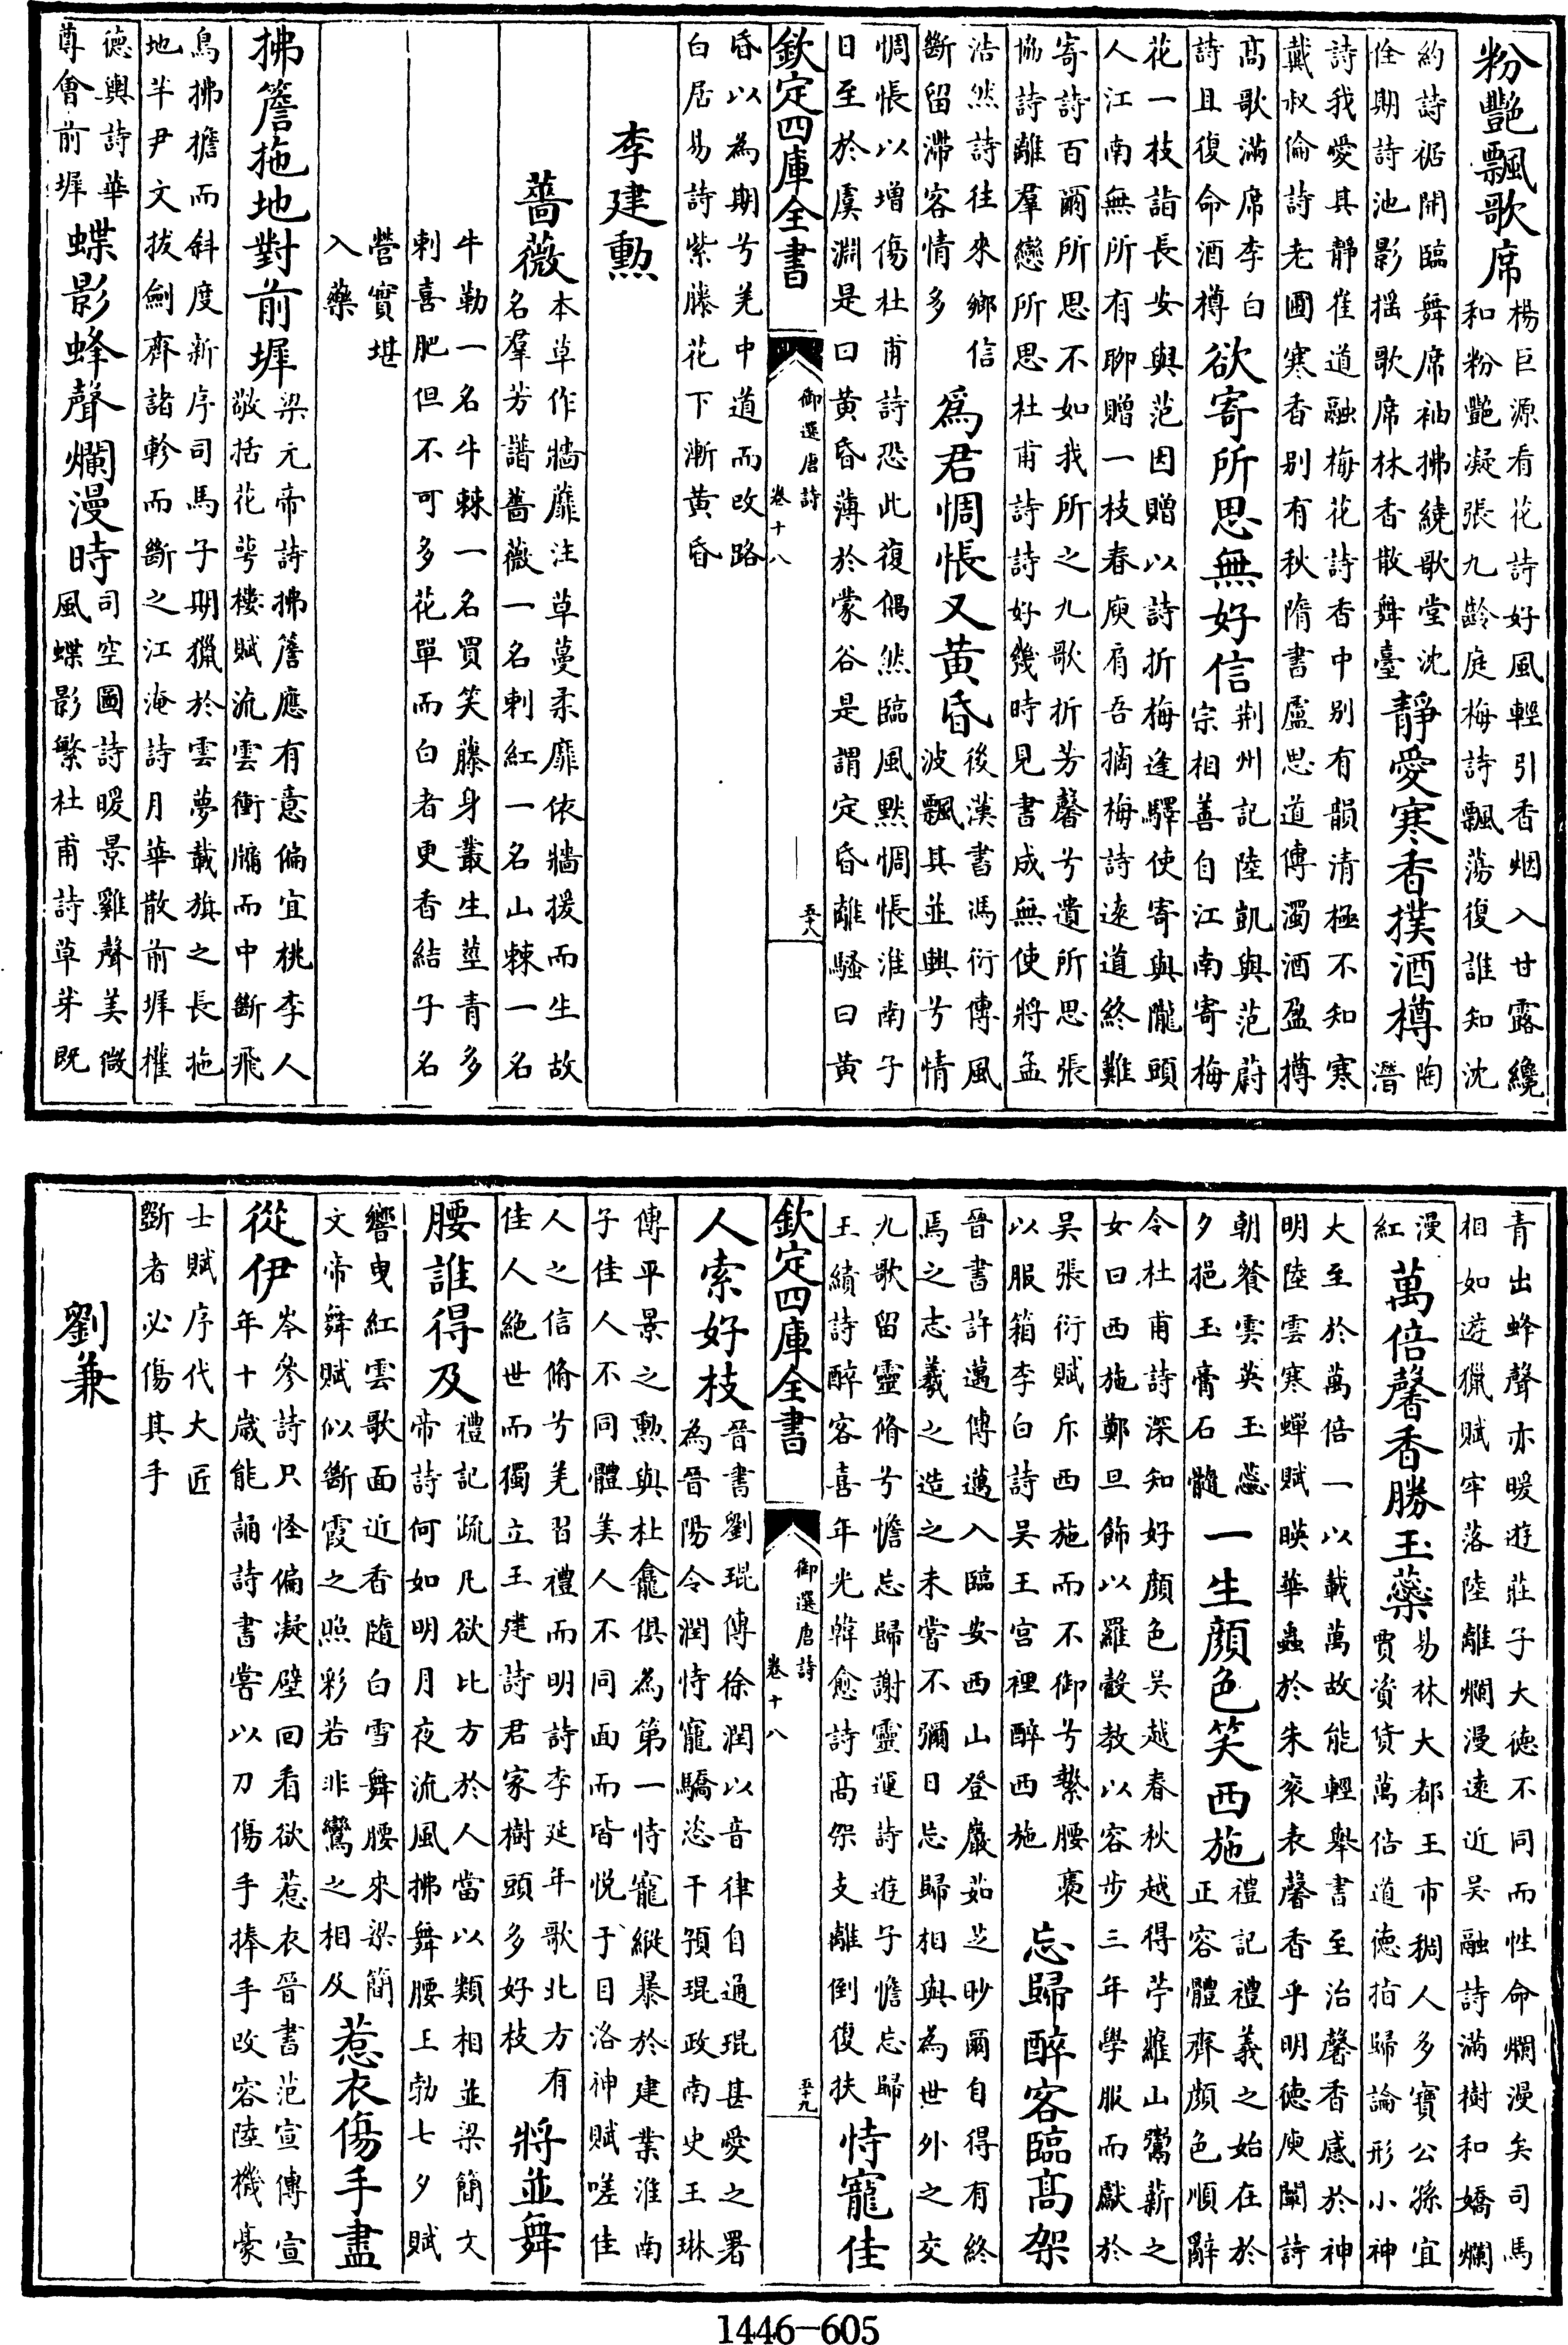 粉艷飄歌席
楊巨源看花詩好風輕引香烟入甘露纔
和粉艷凝張九齡庭梅詩飄蕩復誰知沈
約詩裾開臨舞席袖拂繞歌堂沈
佺期詩池影揺歌席林香散舞臺
靜愛寒香撲酒樽
陶
潛
詩我愛其靜崔道融梅花詩香中别有韻清極不知寒
戴叔倫詩老圃寒香别有秋隋書盧思道傳濁酒盈樽
髙歌滿席李白
詩且復命酒樽
欲寄所思無好信
荆州記陸凱與范蔚
宗相善自江南寄梅
花一枝詣長安與范因贈以詩折梅逢驛使寄與隴頭
人江南無所有聊贈一枝春庾肩吾摘梅詩逺道終難
寄詩百爾所思不如我所之九歌折芳馨兮遺所思張
協詩離羣戀所思杜甫詩詩好幾時見書成無使將孟
浩然詩往來鄉信
斷留滯客情多
為君惆悵又黄昏
後漢書馮衍傳風
波飄其並興兮情
惆悵以增傷杜甫詩恐此復偶然臨風默惆悵淮南子
日至於虞淵是曰黄昏薄於蒙谷是謂定昏離騷曰黄
欽定四庫全書
御選唐詩
卷十八
五十八
昏以為期兮羌中道而改路
白居易詩紫藤花下漸黄昏
李建勲
薔薇
本草作墻蘼注草蔓柔靡依牆援而生故
名羣芳譜薔薇一名刺紅一名山棘一名
牛勒一名牛棘一名買笑藤身叢生莖青多
刺喜肥但不可多花單而白者更香結子名
營實堪
入藥
拂簷拖地對前墀
梁元帝詩拂簷應有意偏宜桃李人
敬括花萼樓賦流雲衝牖而中斷飛
鳥拂擔而斜度新序司馬子期獵於雲夢載旗之長拖
地羋尹文拔劍齊諸軫而斷之江淹詩月華散前墀權
德輿詩華
尊會前墀
蝶影蜂聲爛漫時
司空圖詩暖景雞聲美微
風蝶影繁杜甫詩草芽既
青出蜂聲亦暖遊莊子大徳不同而性命爛漫矣司馬
相如遊獵賦牢落陸離爛漫逺近吴融詩滿樹和嬌爛
漫
紅
萬倍馨香勝玉蘂
易林大都王市稠人多寶公孫宜
賈資貨萬倍道徳指歸論形小神
大至於萬倍一以載萬故能輕舉書至治馨香感於神
明陸雲寒蟬賦暎華蟲於朱衮表馨香乎明徳庾闡詩
朝餐雲英玉蕊
夕挹玉膏石髓
一生顔色笑西施
禮記禮義之始在於
正容體齊顔色順辭
令杜甫詩深知好顔色吴越春秋越得苧蘿山鬻薪之
女曰西施鄭旦飾以羅縠教以容步三年學服而獻於
吴張衍賦斥西施而不御兮縶腰褭
以服箱李白詩吴王宫裡醉西施
忘歸醉客臨髙架
晉書許邁傳邁入臨安西山登巖茹芝眇爾自得有終
焉之志羲之造之未嘗不彌日忘歸相與為世外之交
九歌留靈脩兮憺忘歸謝靈運詩遊子憺忘歸
王績詩醉客喜年光韓愈詩髙架支離倒復扶
恃寵佳
欽定四庫全書
御選唐詩
卷十八
五十九
人索好枝
晉書劉琨傳徐潤以音律自通琨甚愛之署
為晉陽令潤恃寵驕恣干預琨政南史王琳
傳平景之勲與杜龕俱為第一恃寵縱暴於建業淮南
子佳人不同體美人不同面而皆悦于目洛神賦嗟佳
人之信脩兮羌習禮而明詩李延年歌北方有
佳人絶世而獨立王建詩君家樹頭多好枝
將並舞
腰誰得及
禮記疏凡欲比方於人當以類相並梁簡文
帝詩何如明月夜流風拂舞腰王勃七夕賦
響曳紅雲歌面近香隨白雪舞腰來梁簡
文帝舞賦似斷霞之照彩若非鸞之相及
惹衣傷手盡
從伊
岑參詩只怪偏凝壁回看欲惹衣晉書范宣傳宣
年十嵗能誦詩書嘗以刀傷手捧手改容陸機豪
士賦序代大匠
斲者必傷其手
劉兼
1446-605